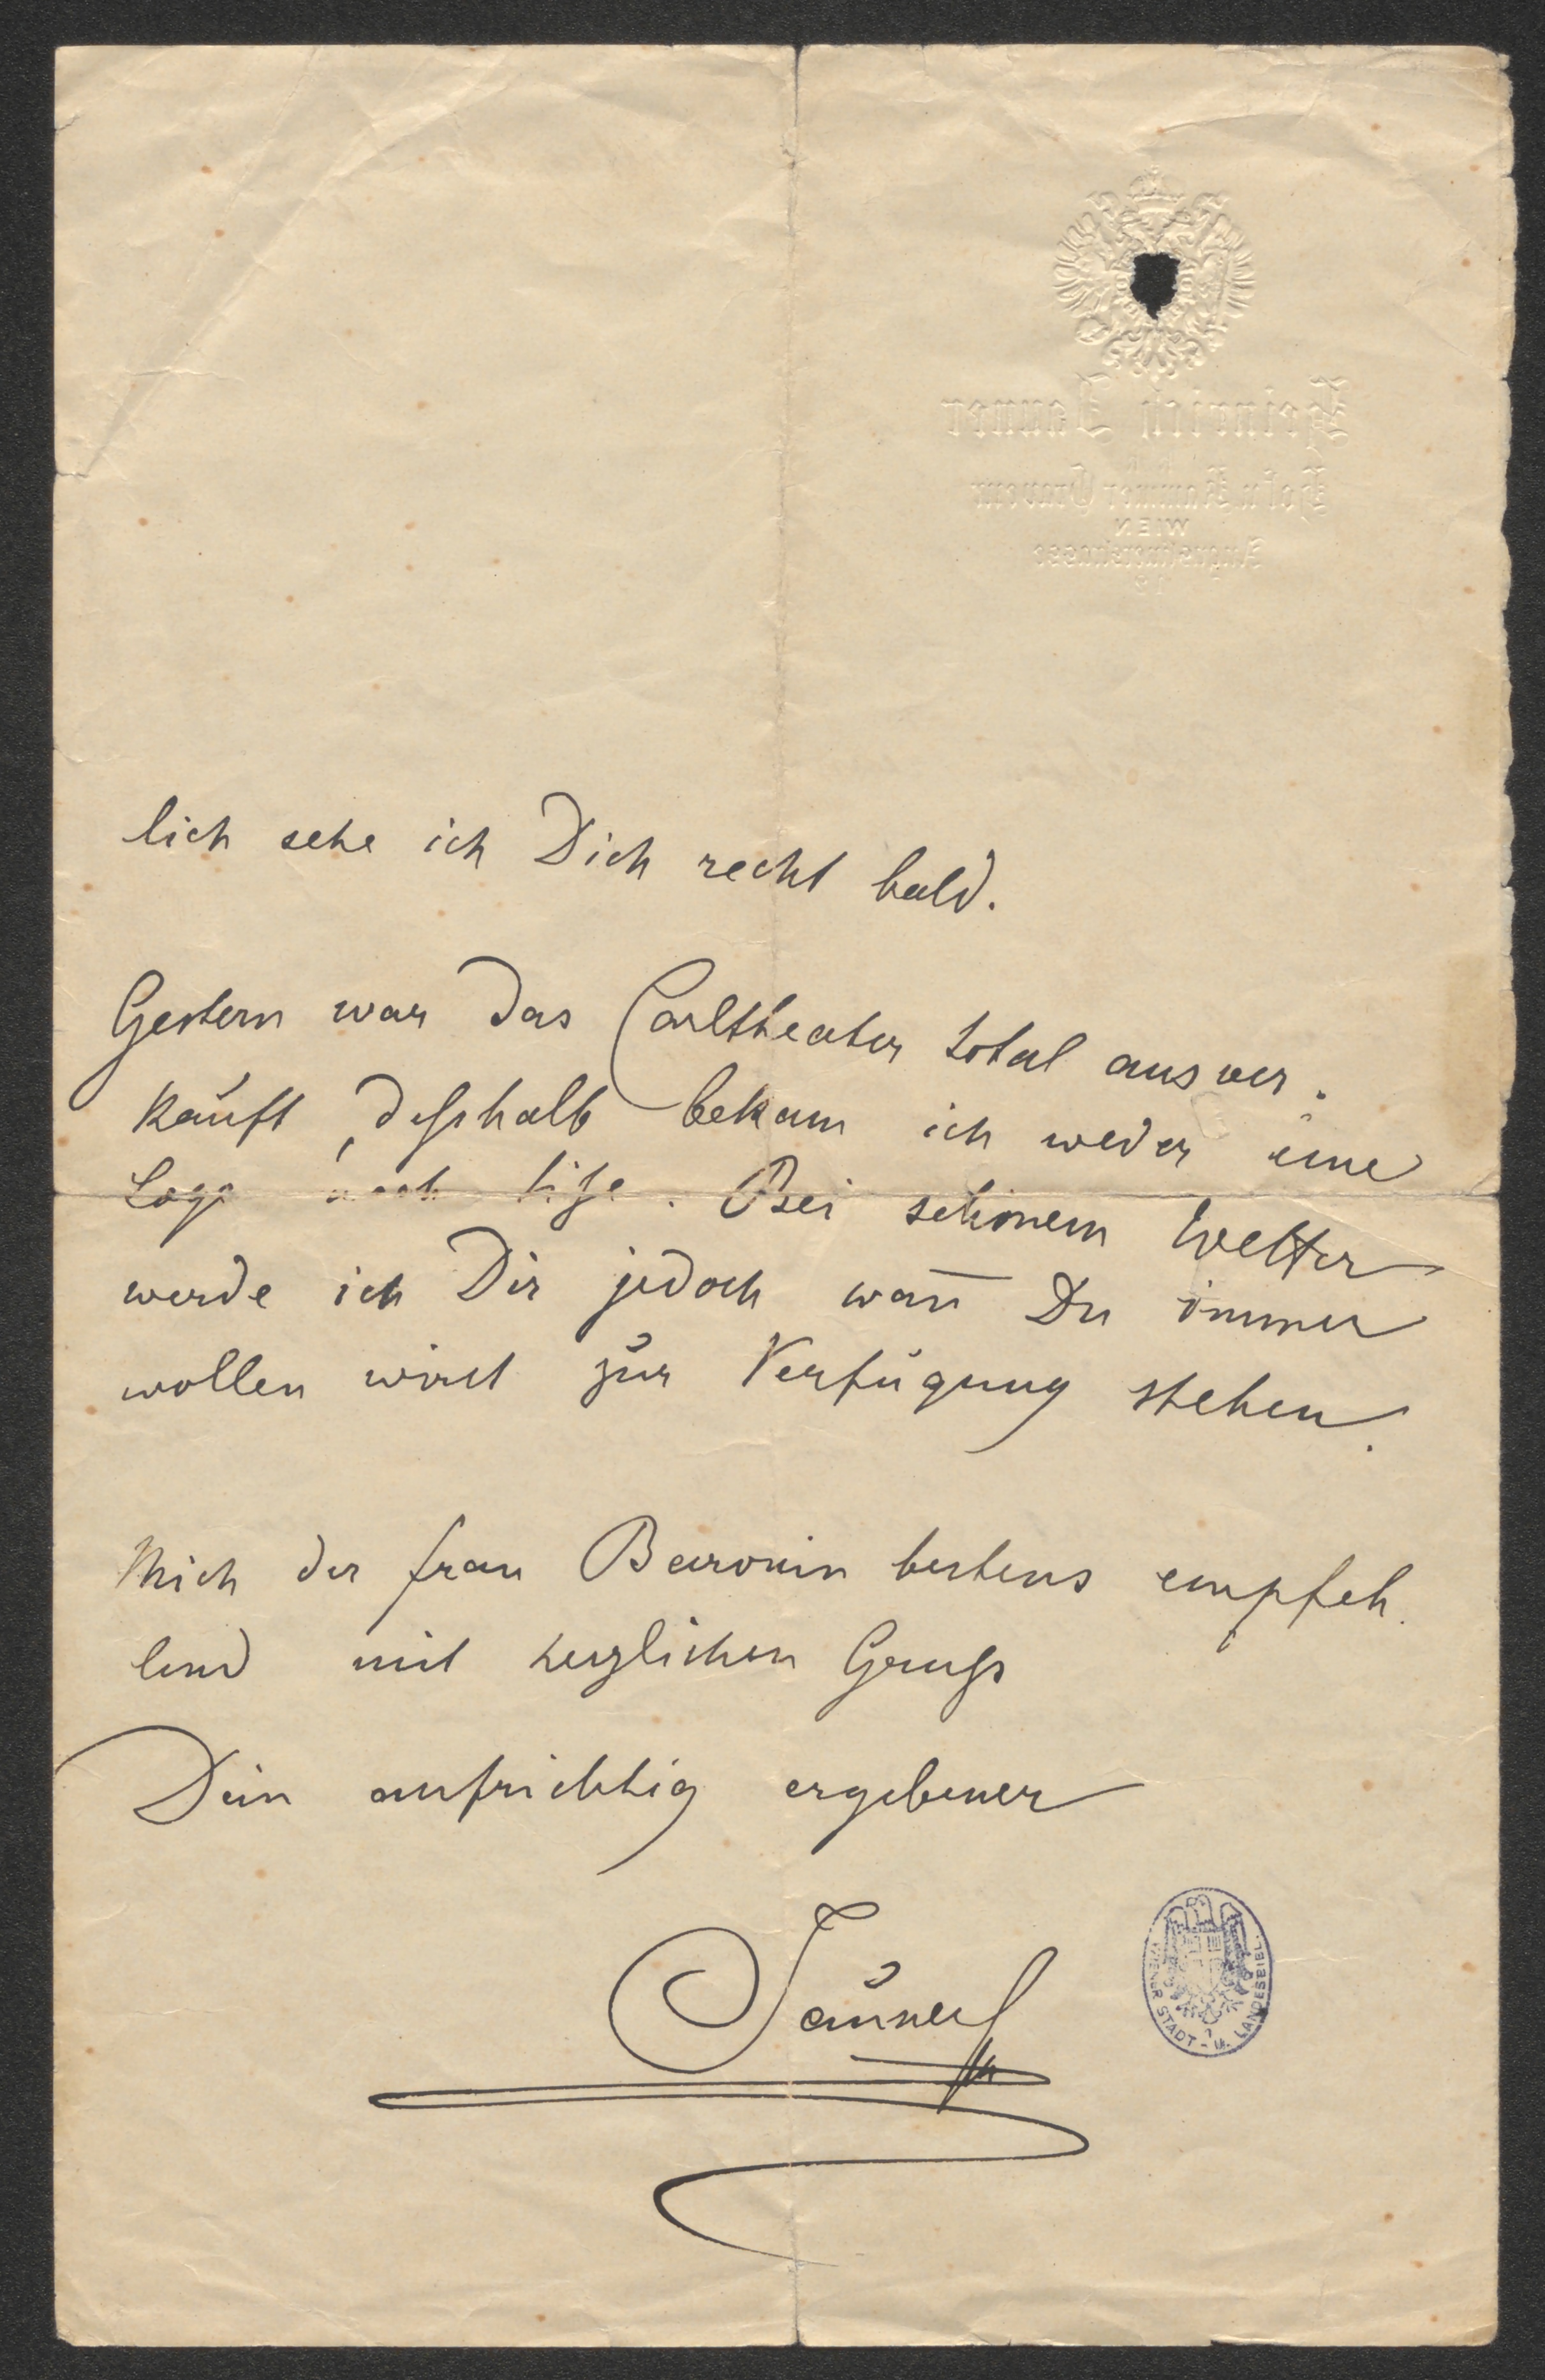 Heinrich Jauner
k. k.
Hof u. Kammer Graveur
WIEN
Augustinerstrasse
12
lich sehe ich Dich recht bald.
Gestern war das Carltheater total ausver-
kauft, deßhalb bekam ich weder eine
Loge noch Sitze. Bei schönem Wetter
werde ich Dir jedoch wañ Du immer
wollen wirst zur Verfügung stehen.
Mich der Frau Baronin bestens empfeh-
lend mit herzlichen Gruß
Dein aufrichtig ergebener
Jauner
WIENER STADT- U. LANDESBIBL.